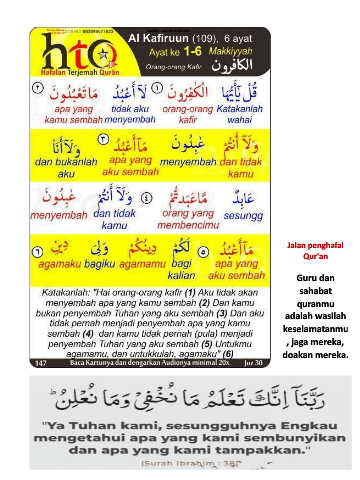 Al Kafiruun (109), 6 ayat
Ayat ke 1-6 Makkiyyah
Orang-orang Kafir الكافرون
hto
Hafalan Terjemah Qur'an
قُلْ يَٰٓأَيُّهَا الْكَٰفِرُوْنَ ① لَآ أَعْبُدُ مَا تَعْبُدُوْنَ ②
apa yang tidak aku orang-orang Katakanlah
kamu sembah menyembah kafir wahai
وَلَآ أَنْتُمْ عَٰبِدُوْنَ مَآ أَعْبُدُ ③ وَلَآ أَنَا۠
dan bukanlah apa yang menyembah dan tidak
aku aku sembah kamu
عَابِدٌ مَّا عَبَدتُّمْ ④ وَلَآ أَنْتُمْ عَٰبِدُوْنَ
menyembah dan tidak orang yang sesungg
kamu membencimu
مَآ أَعْبُدُ ⑤ لَكُمْ دِيْنُكُمْ وَلِيَ دِيْنِ ⑥
agamaku bagiku agamamu bagi apa yang
kalian aku sembah
Katakanlah: "Hai orang-orang kafir (1) Aku tidak akan
menyembah apa yang kamu sembah (2) Dan kamu
bukan penyembah Tuhan yang aku sembah (3) Dan aku
tidak pernah menjadi penyembah apa yang kamu
sembah (4) dan kamu tidak pernah (pula) menjadi
penyembah Tuhan yang aku sembah (5) Untukmu
agamamu, dan untukkulah, agamaku" (6)
147 Baca Kartunya dan dengarkan Audionya minimal 20x Juz 30
Jalan penghafal
Qur'an
Guru dan
sahabat
quranmu
adalah wasilah
keselamatanmu
, jaga mereka,
doakan mereka.
رَبَّنَآ اِنَّكَ تَعْلَمُ مَا نُخْفِيْ وَمَا نُعْلِنُ ۗ
"Ya Tuhan kami, sesungguhnya Engkau
mengetahui apa yang kami sembunyikan
dan apa yang kami tampakkan."
(Surah Ibrahim : 38)